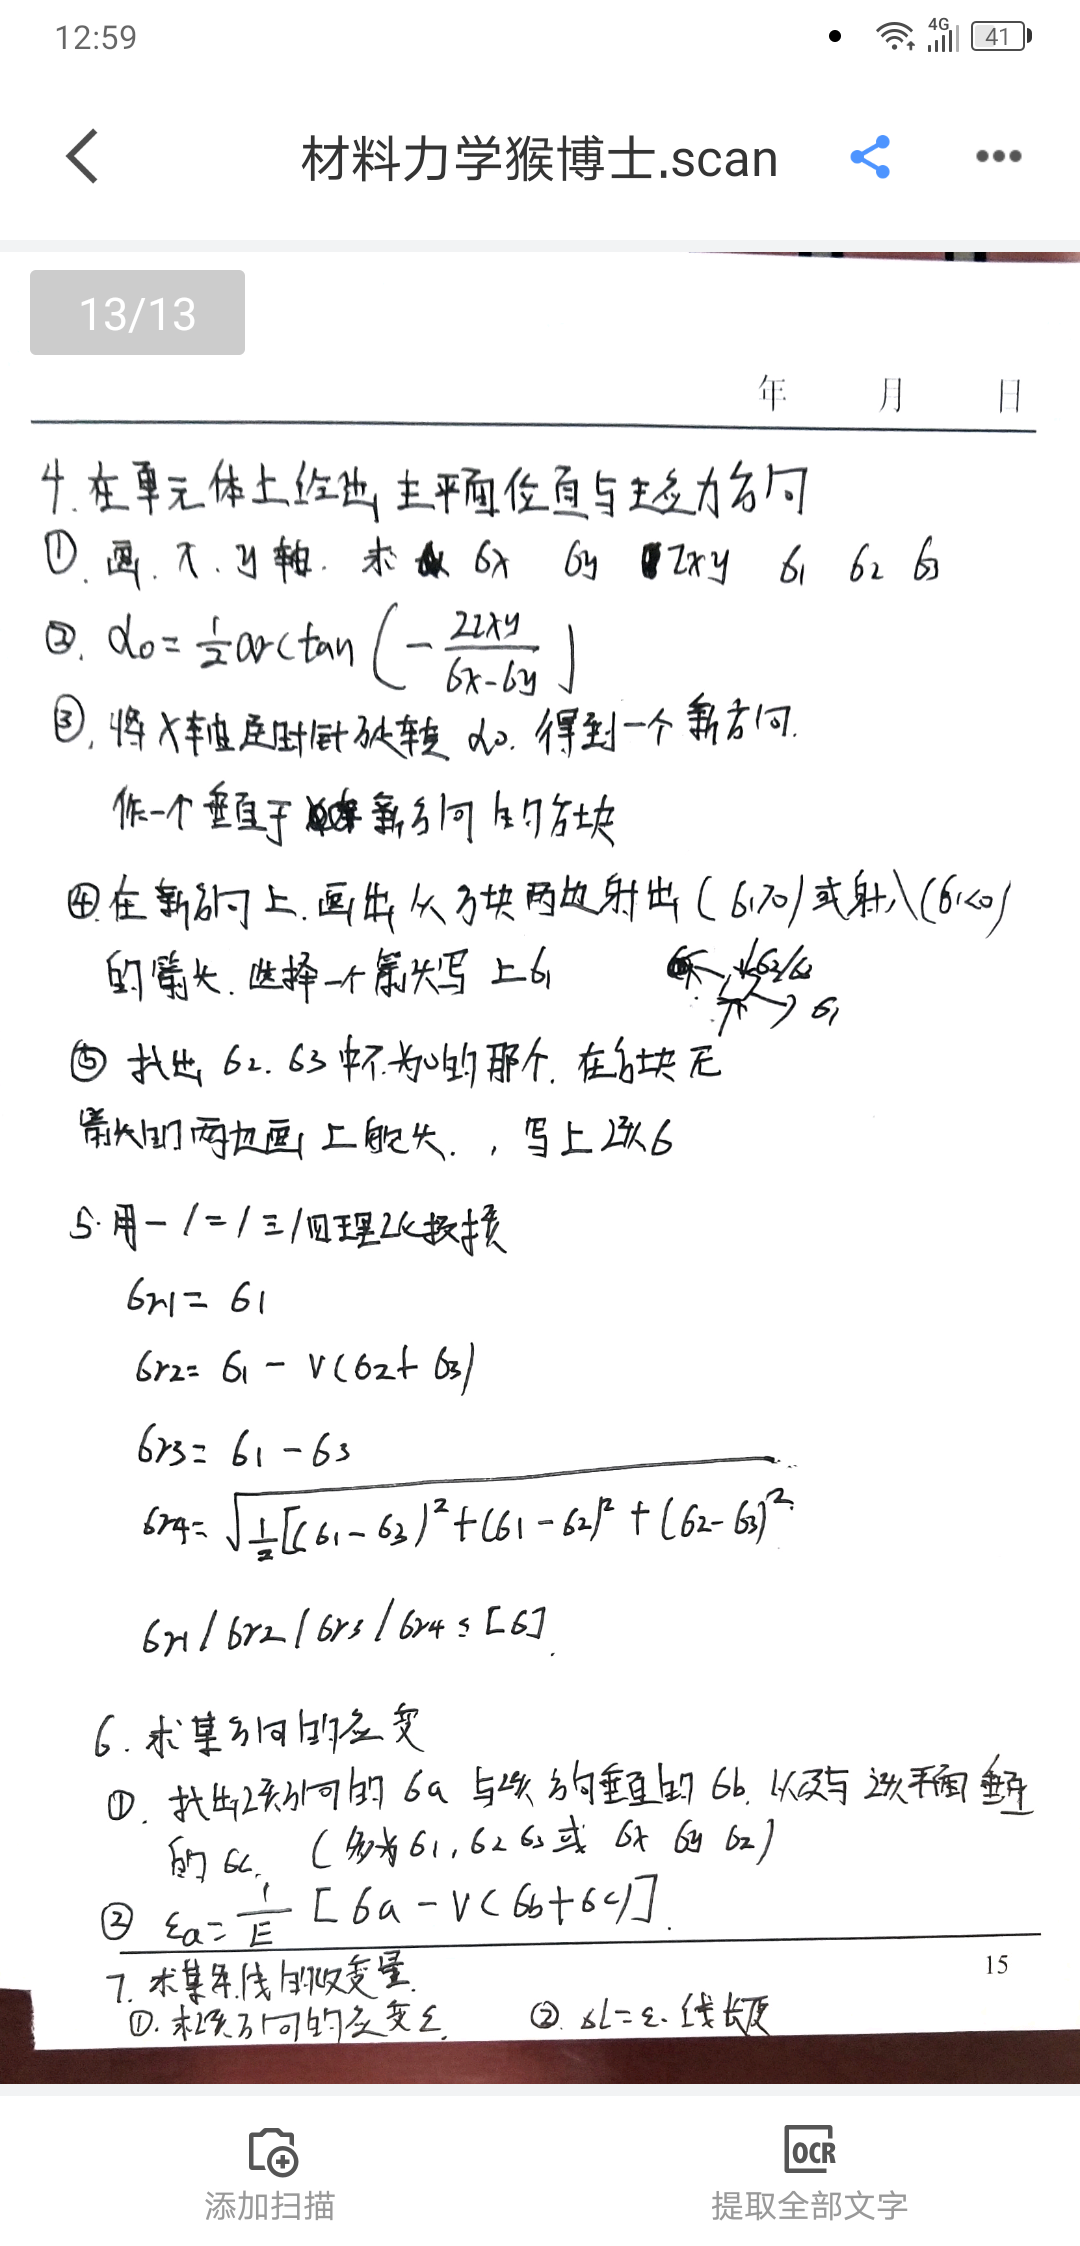 12:59
4G
41
材料力学猴博士.scan
13/13
年 月 日
4.在单元体上绘出主平面位置与主应力方向
①.画.x.y轴.求 6x 6y τxy 61 62 63
②. α0=1/2arctan(-2τxy/6x-6y)
③.将x轴逆时针旋转α0.得到一个新方向.
作一个垂直于新方向的方块
④.在新方向上.画出从方块两边射出(61>0)或射入(61<0)
的箭头.选择一个箭头写上61
62/63
61
⑤找出62.63中不为0的那个.在方块无
箭头的两边画上箭头.,写上该6
5.用一/二/三/四理论校核
6r1=61
6r2=61-ν(62+63)
6r3=61-63
6r4=√1/2[(61-63)²+(61-62)²+(62-63)²
6r1/6r2/6r3/6r4≤[6].
6.求某方向的应变
①.找出该方向的6a与该方向垂直的6b.以及与该平面垂直
的6c.(多为61,62 63或6x 6y 6z)
② εa=1/E[6a-ν(6b+6c)].
15
7.求某条线的改变量.
①.求该方向的应变ε. ②.ΔL=ε.线长度
添加扫描
OCR
提取全部文字